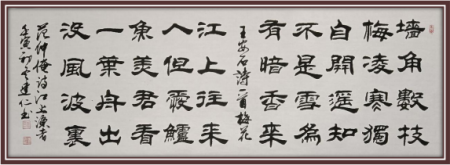 墻角數枝
梅凌寒獨
自開遥知
不是雪為
有暗香来
王安石詩一首梅花
江上往来
人但愛鱸
魚美君看
一葉舟出
没風波裏
范仲淹詩江上漁者
壬寅初建仁書